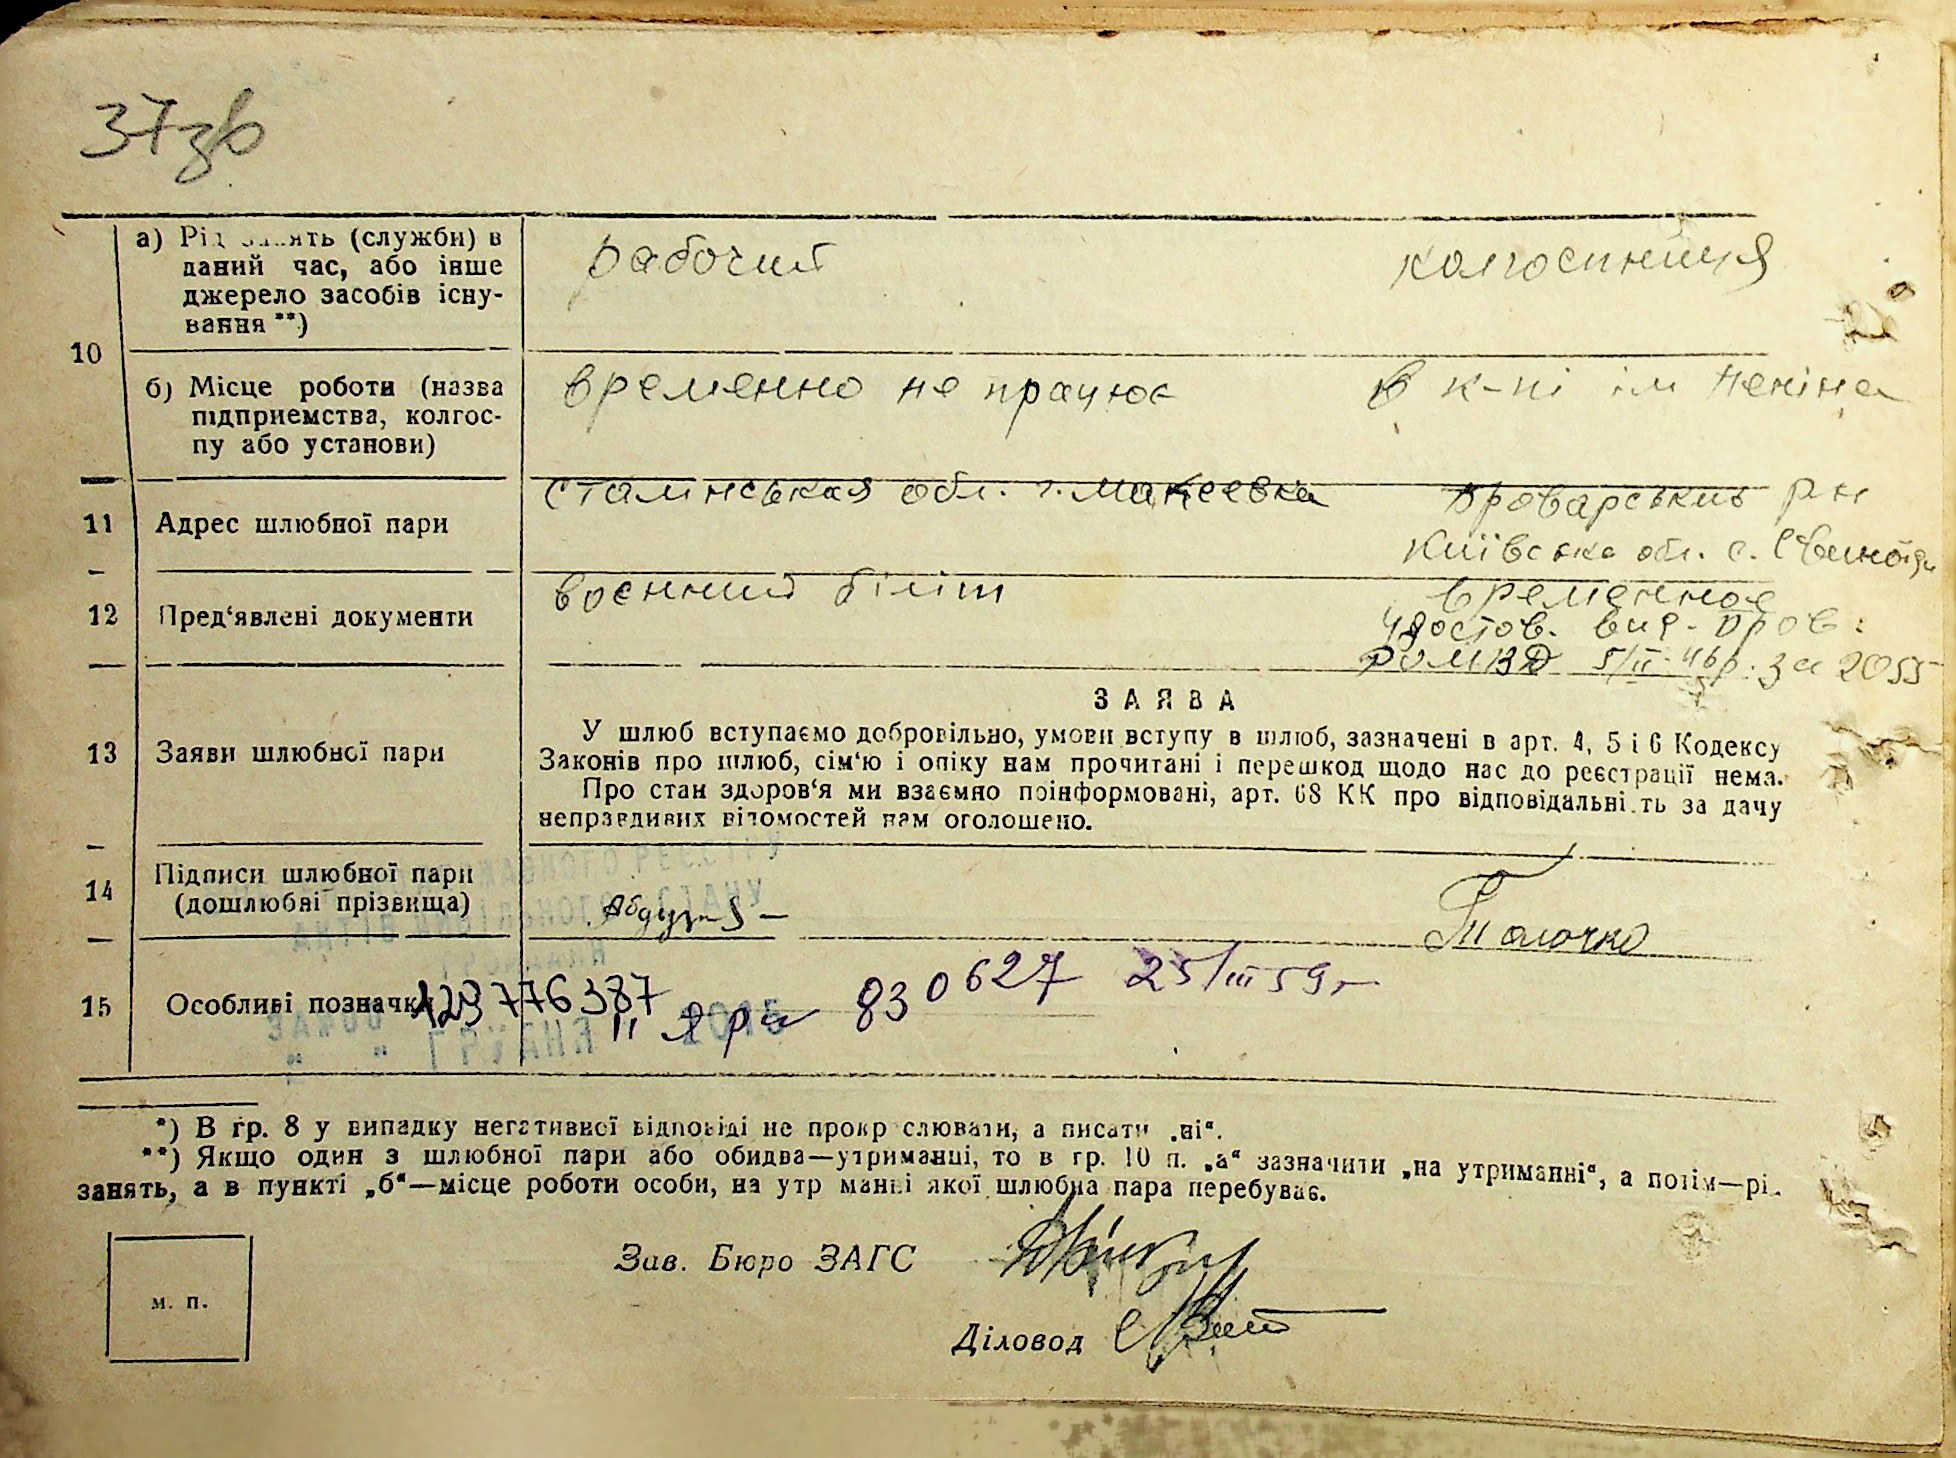 37зв
а) Рід занять (служби) в
даний час, або інше
джерело засобів існу-
вання **)
рабочий
колгоспниця
10
б) Місце роботи (назва
підприємства, колгос-
пу або установи)
временно не працює
в к-пі ім Леніна
11
Адрес шлюбної пари
Сталінськая обл. г. Макеевка
Броварський р-н
Київська обл. с.
12
Пред'явлені документи
воєнний біліт
временное
удостов. вид. Бров.
РОМВД 5/II-46р. за 2055
13
Заяви шлюбної пари
ЗАЯВА
У шлюб вступаємо добровільно, умови вступу в шлюб, зазначені в арт. 4, 5 і 6 Кодексу
Законів про шлюб, сім'ю і опіку нам прочитані і перешкод щодо нас до реєстрації нема.
Про стан здоров'я ми взаємно поінформовані, арт. 68 КК про відповідальність за дачу
неправдивих відомостей нам оголошено.
14
Підписи шлюбної пари
(дошлюбні прізвища)
Толочко
15
Особливі позначки
123776387
II Я рн 830627 25/III 59 г
*) В гр. 8 у випадку негативної відповіді не прокреслювати, а писати „ні“.
**) Якщо один з шлюбної пари або обидва—утриманці, то в гр. 10 п. „а“ зазначити „на утриманні“, а потім—рі
занять, а в пункті „б“—місце роботи особи, на утриманні якої шлюбна пара перебуває.
м. п.
Зав. Бюро ЗАГС
Діловод